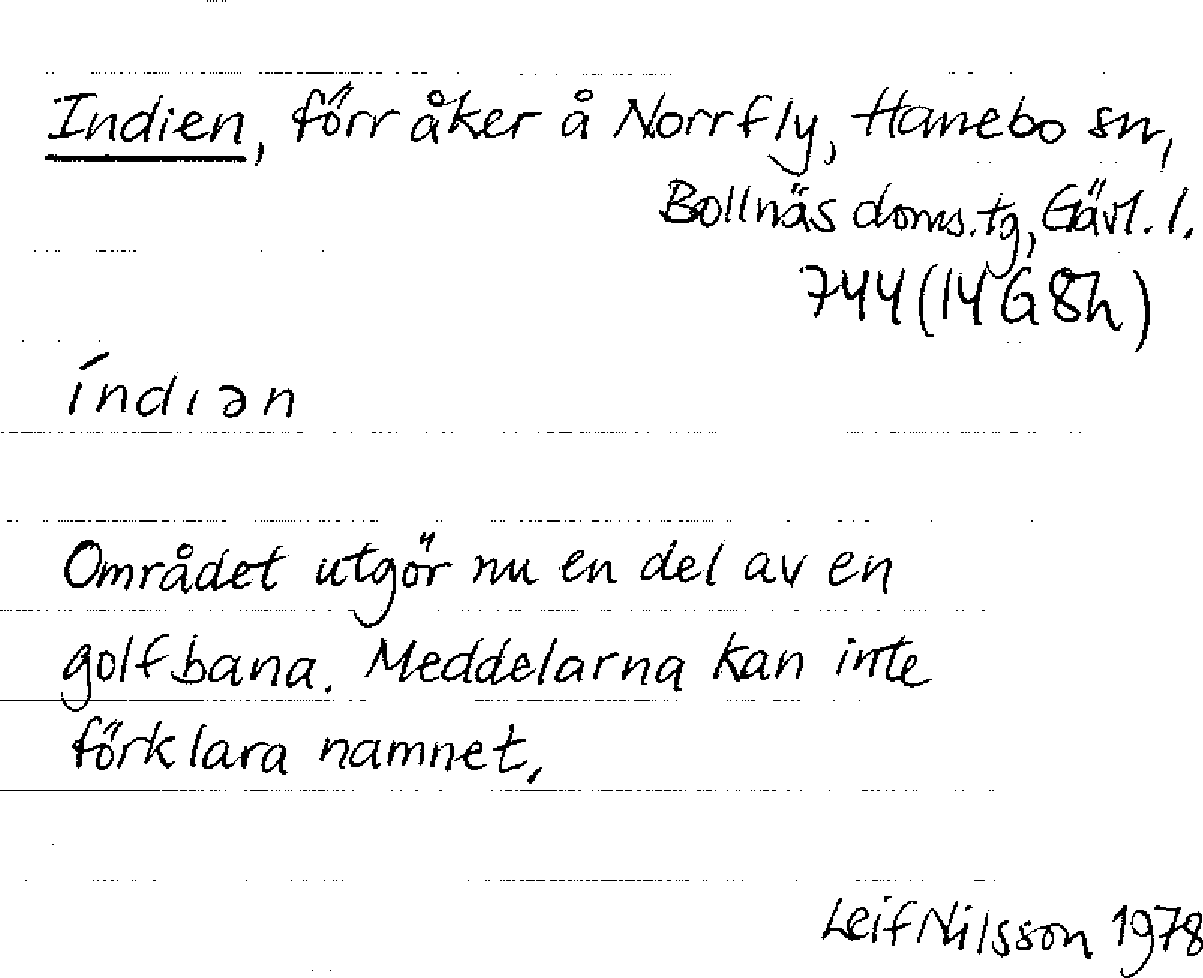 Indien, förr åker å Norrfly, Hanebo sn,
Bollnäs doms.tg, Gävl. l.
744 (14 G 8h)
índıən
Området utgör nu en del av en
golfbana. Meddelarna kan inte
förklara namnet.
Leif Nilsson 1978